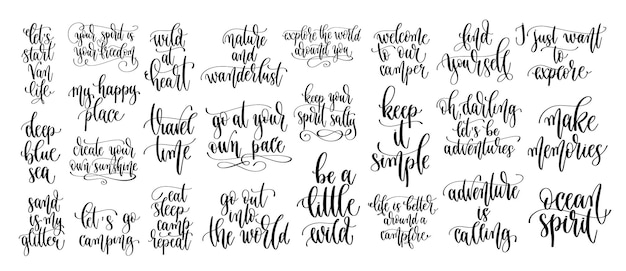 let's
start
van
life
your spirit is
your freedom
wild
at
heart
nature
and
wanderlust
explore the world
around you
welcome
to our
camper
find
yourself
I just want
to
explore
my happy
place
deep
blue
sea
create your
own sunshine
travel
time
go at your
own pace
keep your
spirit salty
keep
it
simple
oh, darling
let's be
adventures
make
memories
sand
is my
glitter
let's go
camping
eat
sleep
camp
repeat
go out
into
the world
be a
little
wild
life is better
around a
campfire
adventure
is
calling
ocean
spirit